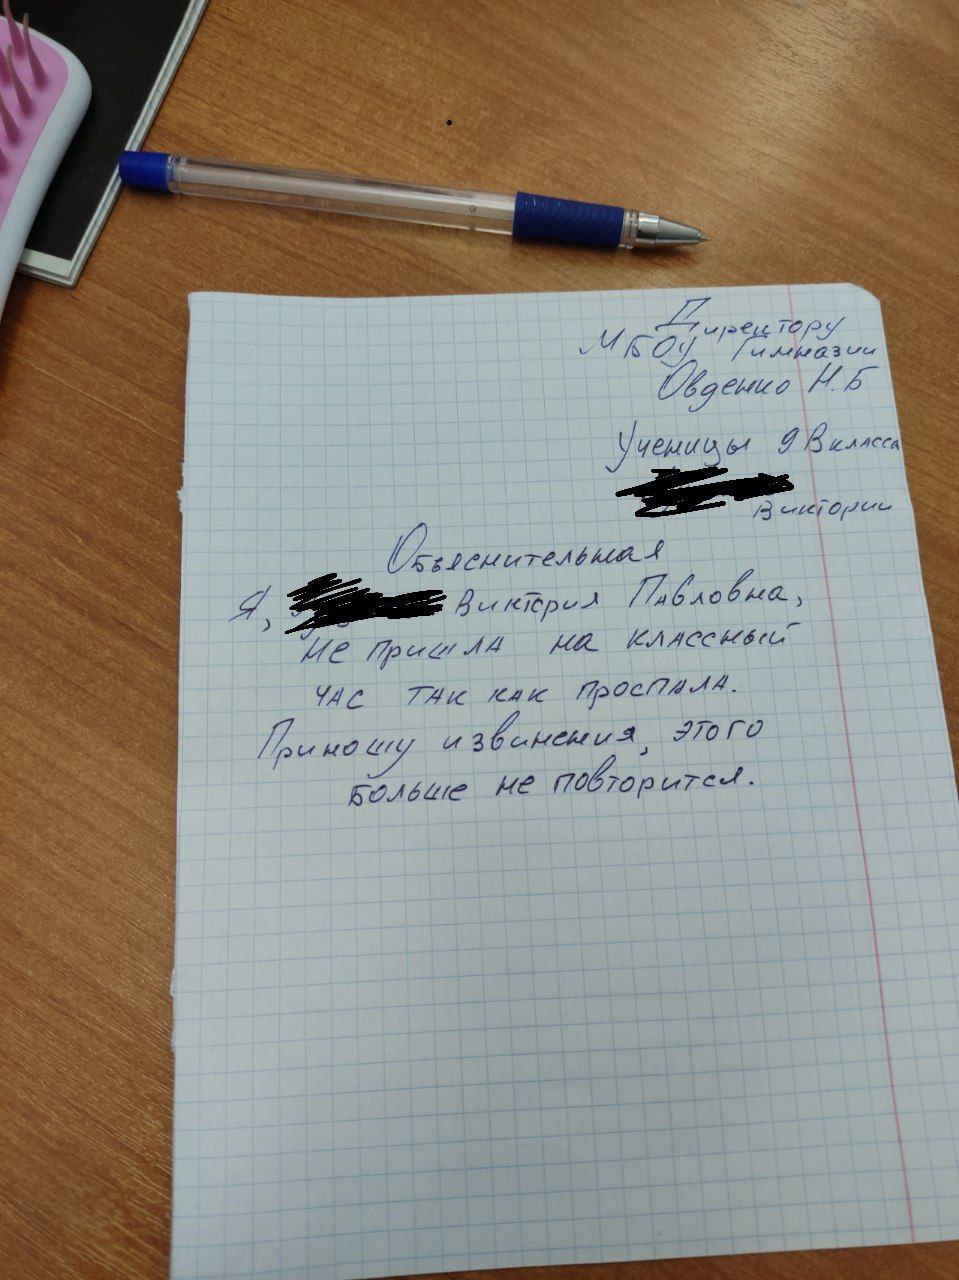 Директору
МБОУ Гимназии
Овденко Н.Б
Ученицы 9 В класса
Виктории
Объяснительная
Я, Виктория Павловна,
не пришла на классный
час так как проспала.
Приношу извинения, этого
больше не повторится.